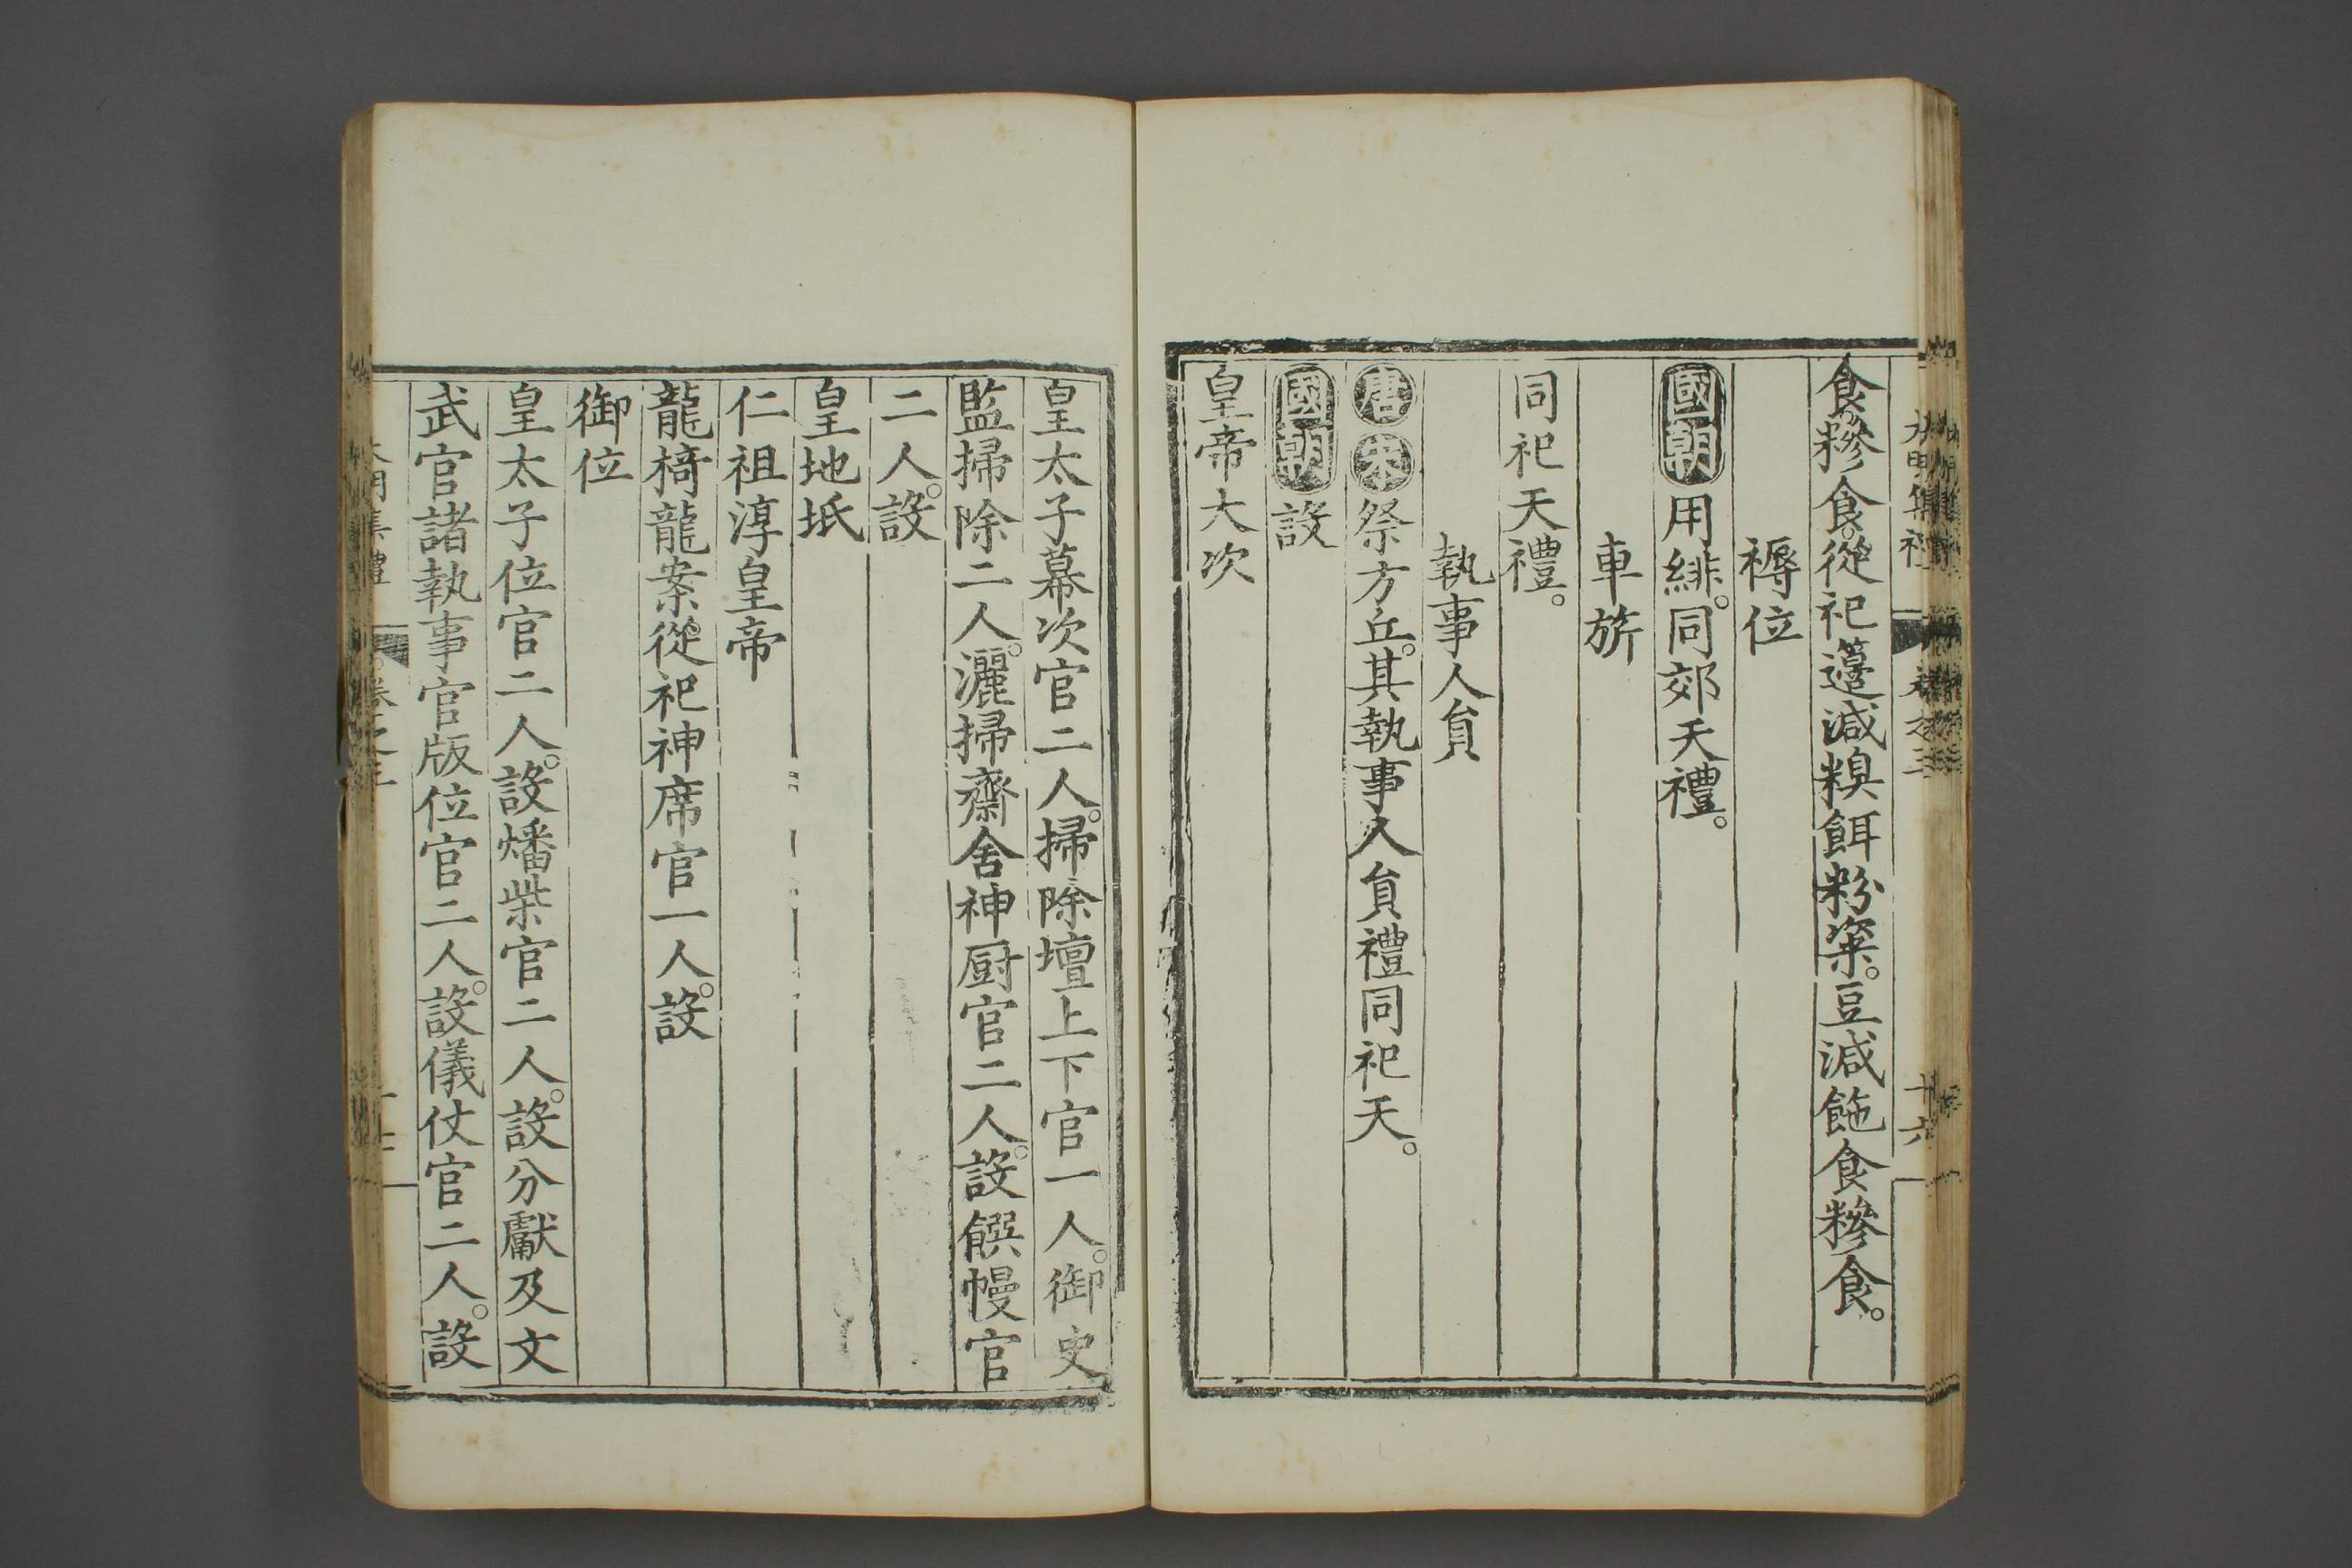 食糝食從祀籩減糗餌粉粢。豆減飿食糝食。
褥位
國朝用緋。同郊天禮。
車旂
同祀天禮。
執事人貟
唐宋祭方丘。其執事人貟禮同祀天。
國朝設
皇帝大次
皇太子幕次官二人。掃除壇上下官一人。御史
監掃除二人。灑掃齋舍神厨官二人。設饌幔官
二人。設
皇地祇
仁祖淳皇帝
龍椅龍案從祀神席官一人。設
御位
皇太子位官二人。設燔柴官二人。設分獻及文
武官諸執事官版位官二人。設儀仗官二人。設
大明集禮 卷之三 十六